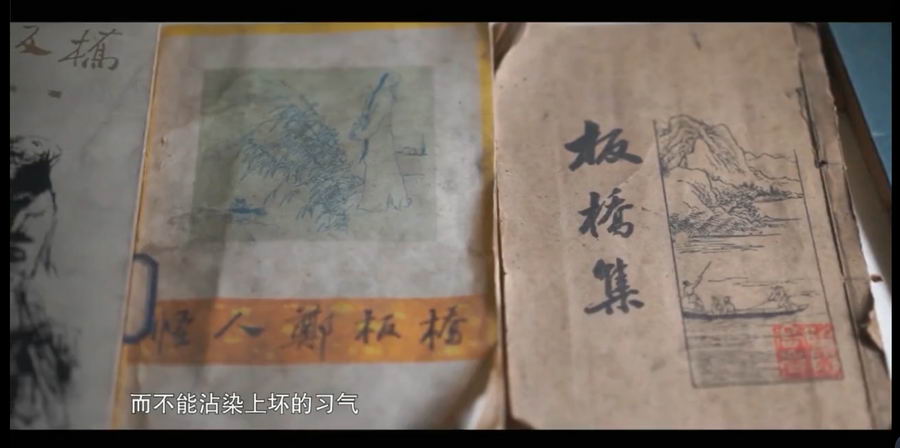 橋
怪人鄭板橋
板橋集
而不能沾染上坏的习气